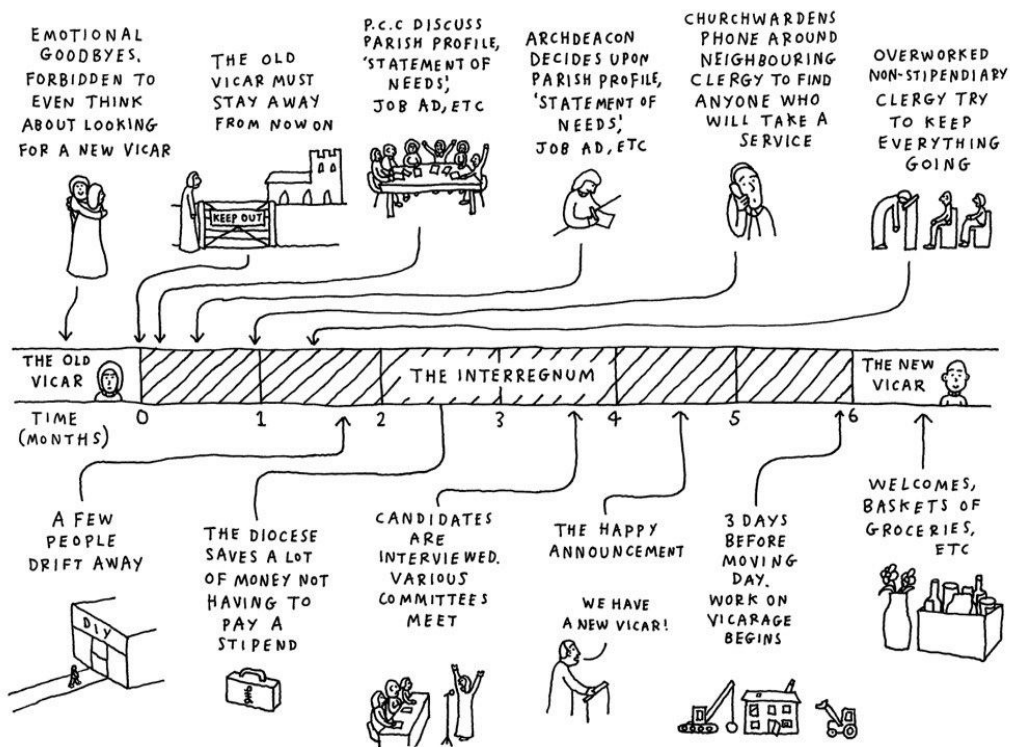 EMOTIONAL
GOODBYES.
FORBIDDEN TO
EVEN THINK
ABOUT LOOKING
FOR A NEW VICAR
THE OLD
VICAR MUST
STAY AWAY
FROM NOW ON
KEEP OUT
P.C.C DISCUSS
PARISH PROFILE,
'STATEMENT OF
NEEDS',
JOB AD, ETC
ARCHDEACON
DECIDES UPON
PARISH PROFILE,
'STATEMENT OF
NEEDS',
JOB AD, ETC
CHURCHWARDENS
PHONE AROUND
NEIGHBOURING
CLERGY TO FIND
ANYONE WHO
WILL TAKE A
SERVICE
OVERWORKED
NON-STIPENDIARY
CLERGY TRY
TO KEEP
EVERYTHING
GOING
THE OLD
VICAR
THE INTERREGNUM
THE NEW
VICAR
TIME
(MONTHS)
0 1 2 3 4 5 6
A FEW
PEOPLE
DRIFT AWAY
DIY
THE DIOCESE
SAVES A LOT
OF MONEY NOT
HAVING TO
PAY A
STIPEND
CANDIDATES
ARE
INTERVIEWED.
VARIOUS
COMMITTEES
MEET
THE HAPPY
ANNOUNCEMENT
WE HAVE
A NEW VICAR!
3 DAYS
BEFORE
MOVING
DAY.
WORK ON
VICARAGE
BEGINS
WELCOMES,
BASKETS OF
GROCERIES,
ETC